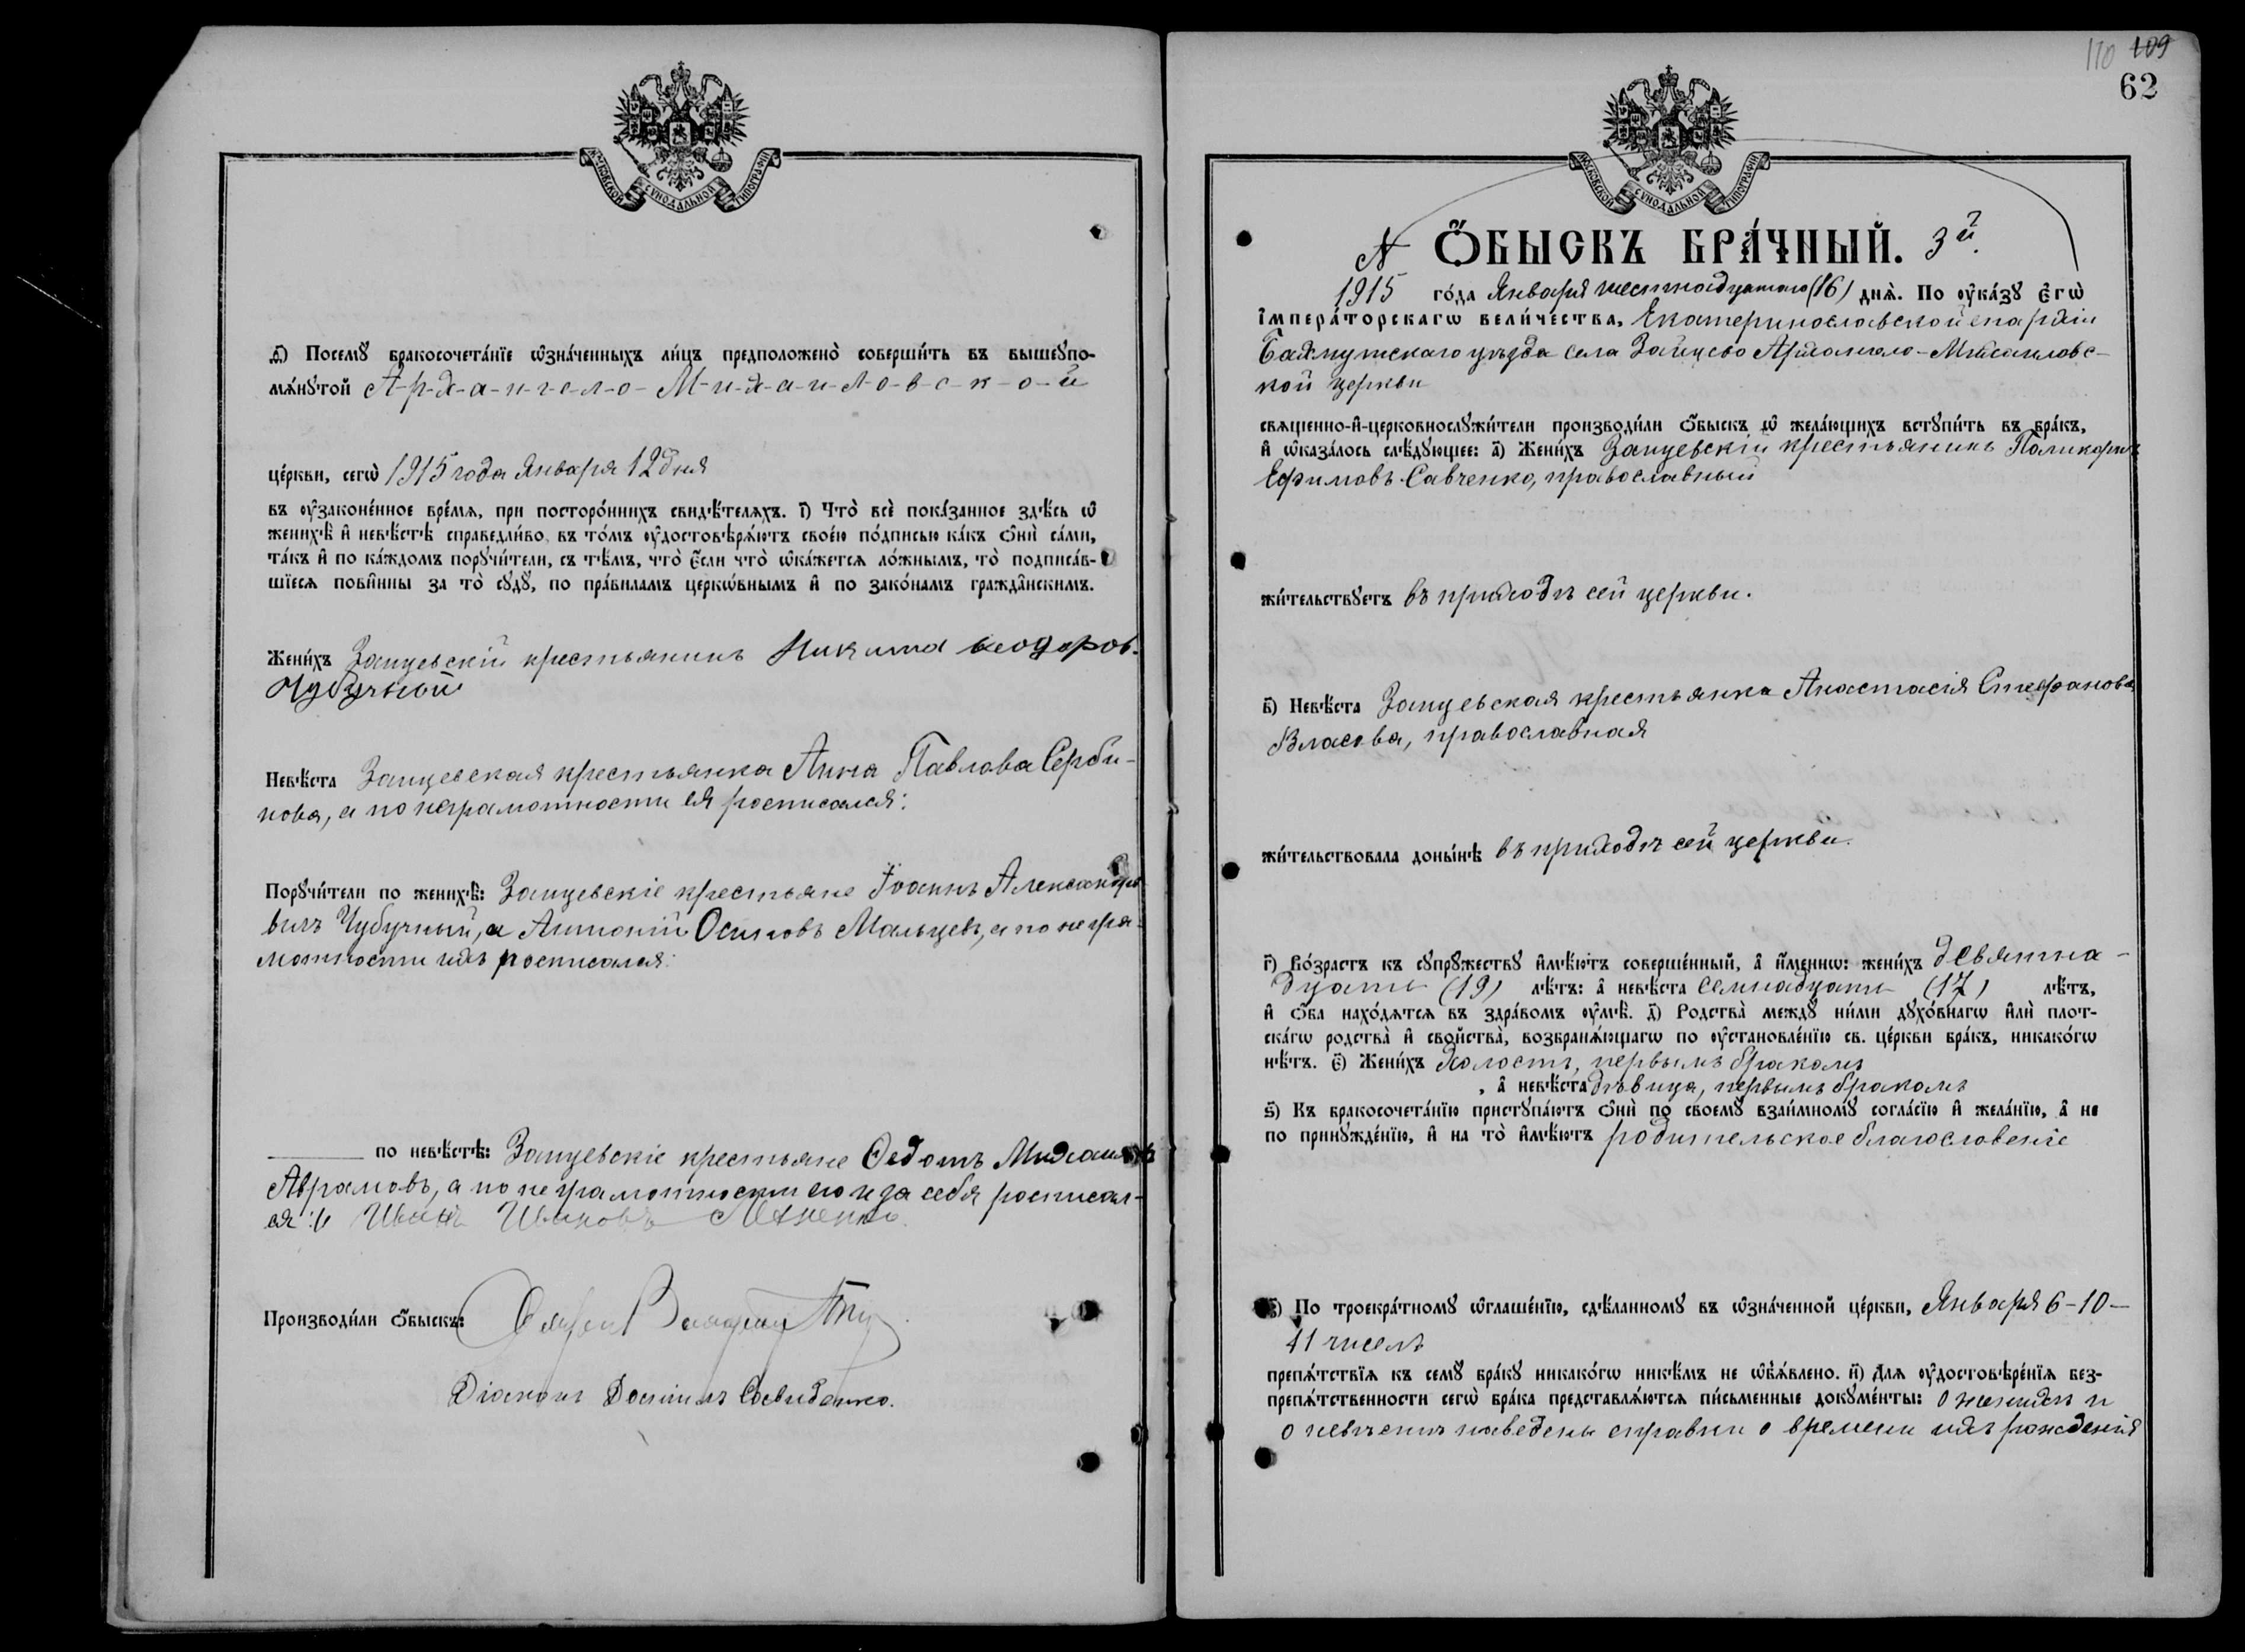 МОСКОВСКОЙ СѴНОДАЛЬНОЙ ТИПОГРАФІИ
ѳ҃) Посемꙋ бракосочета́нїе ѡ҆зна́ченныхъ ли́цъ предположено̀ соверши́ть въ вышеꙋпо-
мѧ́нꙋтой А-р-х-а-н-г-е-л-о- М-и-х-а-и-л-о-в-с-к-о-й
це́ркви, сегѡ̀ 1915 года Января 12 дня
въ ᲂу҆законе́нное вре́мѧ, при посторо́ннихъ свидѣ́телѧхъ. і҃) Что̀ всѐ пока́занное здѣ́сь ѡ҆
женихѣ̀ и҆ невѣ́стѣ справедли́во, въ то́мъ ᲂу҆достовѣрѧ́ютъ свое́ю по́дписью ка́къ ѻ҆нѝ са́ми,
та́къ и҆ по ка́ждомъ порꙋчи́тели, съ тѣ́мъ, что̀ є҆́сли что̀ ѡ҆ка́жетсѧ ло́жнымъ, то̀ подписа́в-
шїесѧ пови́нны за то̀ сꙋдꙋ̀, по пра́виламъ церкѡ́внымъ и҆ по зако́намъ гражда́нскимъ.
Жени́хъ Зайцевскій крестьянинъ Никита Ѳеодоров.
Чубучный
Невѣ́ста Зайцевская крестьянка Анна Павлова Серби-
нова, а по неграмотности ея росписался:
Порꙋчи́тели по женихѣ̀: Зайцевскіе крестьяне Іоаннъ Александро
вичъ Чубучный, а Антоній Осиповъ Мальцевъ, а по негра-
мотности ихъ росписался:
по невѣ́стѣ: Зайцевскіе крестьяне Ѳедотъ Михаиловъ
Аврамовъ, а по неграмотности его и за себя росписал-
ся: Иванъ Ивановъ
Производи́ли ѻ҆́быскъ:
Діаконъ
110 109
62
МОСКОВСКОЙ СѴНОДАЛЬНОЙ ТИПОГРАФІИ
N Ѻ҆́БЫСКЪ БРА́ЧНЫЙ. 3й.
1915 го́да Января шестнадцатого (16) днѧ̀. По ᲂу҆ка́зꙋ є҆гѡ̀
і҆мпера́торскагѡ вели́чества, Екатеринославской епархіи
Бахмутскаго уѣзда села Зайцево Архангело-Михаиловс-
кой церкви
свѧщенно-и҆-церковнослꙋжи́тели производи́ли ѻ҆́быскъ ѡ҆ жела́ющихъ встꙋпи́ть въ бра́къ,
и҆ ѡ҆каза́лось слѣ́дꙋющее: а҃) Жени́хъ Зайцевскій крестьянинъ Поликарпъ
Ефимовъ Савченко, православный
жи́тельствꙋетъ въ приходѣ сей церкви.
в҃) Невѣ́ста Зайцевская крестьянка Анастасія Стефанова
Власова, православная
жи́тельствовала доны́нѣ въ приходѣ сей церкви.
г҃) Во́зрастъ къ сꙋпрꙋ́жествꙋ и҆мѣ́ютъ соверше́нный, а҆ и҆́меннѡ: жени́хъ девятна-
дцати (19) лѣ́тъ: а҆ невѣ́ста семнадцати (17) лѣ́тъ,
и҆ ѻ҆́ба нахо́дѧтсѧ въ здра́вомъ ᲂу҆мѣ̀. д҃) Родства̀ междꙋ̀ ни́ми дꙋхо́внагѡ и҆лѝ плот-
ска́гѡ родства̀ и҆ свойства̀, возбранѧ́ющагѡ по ᲂу҆становле́нїю св. це́ркви бра́къ, никако́гѡ
нѣ́тъ. є҃) Жени́хъ холостъ, первымъ бракомъ
, а҆ невѣ́ста дѣвица, первымъ бракомъ
ѕ҃) Къ бракосочета́нїю пристꙋпа́ютъ ѻ҆нѝ по своемꙋ̀ взаи́мномꙋ согла́сїю и҆ жела́нїю, а҆ не
по принꙋжде́нїю, и҆ на то̀ и҆мѣ́ютъ родительское благословеніе
з҃) По троекра́тномꙋ ѡ҆глаше́нїю, сдѣ́ланномꙋ въ ѡ҆зна́ченной це́ркви, Января 6-10-
11 чиселъ
препѧ́тствїѧ къ семꙋ̀ бра́кꙋ никако́гѡ никѣ́мъ не ѡ҆б̾ѧ́влено. и҃) Длѧ ᲂу҆достовѣре́нїѧ без-
препѧ́тственности сегѡ̀ бра́ка представлѧ́ютсѧ пи́сьменные докꙋме́нты: О женихѣ и
о невѣстѣ наведены справки о времени ихъ рожденія